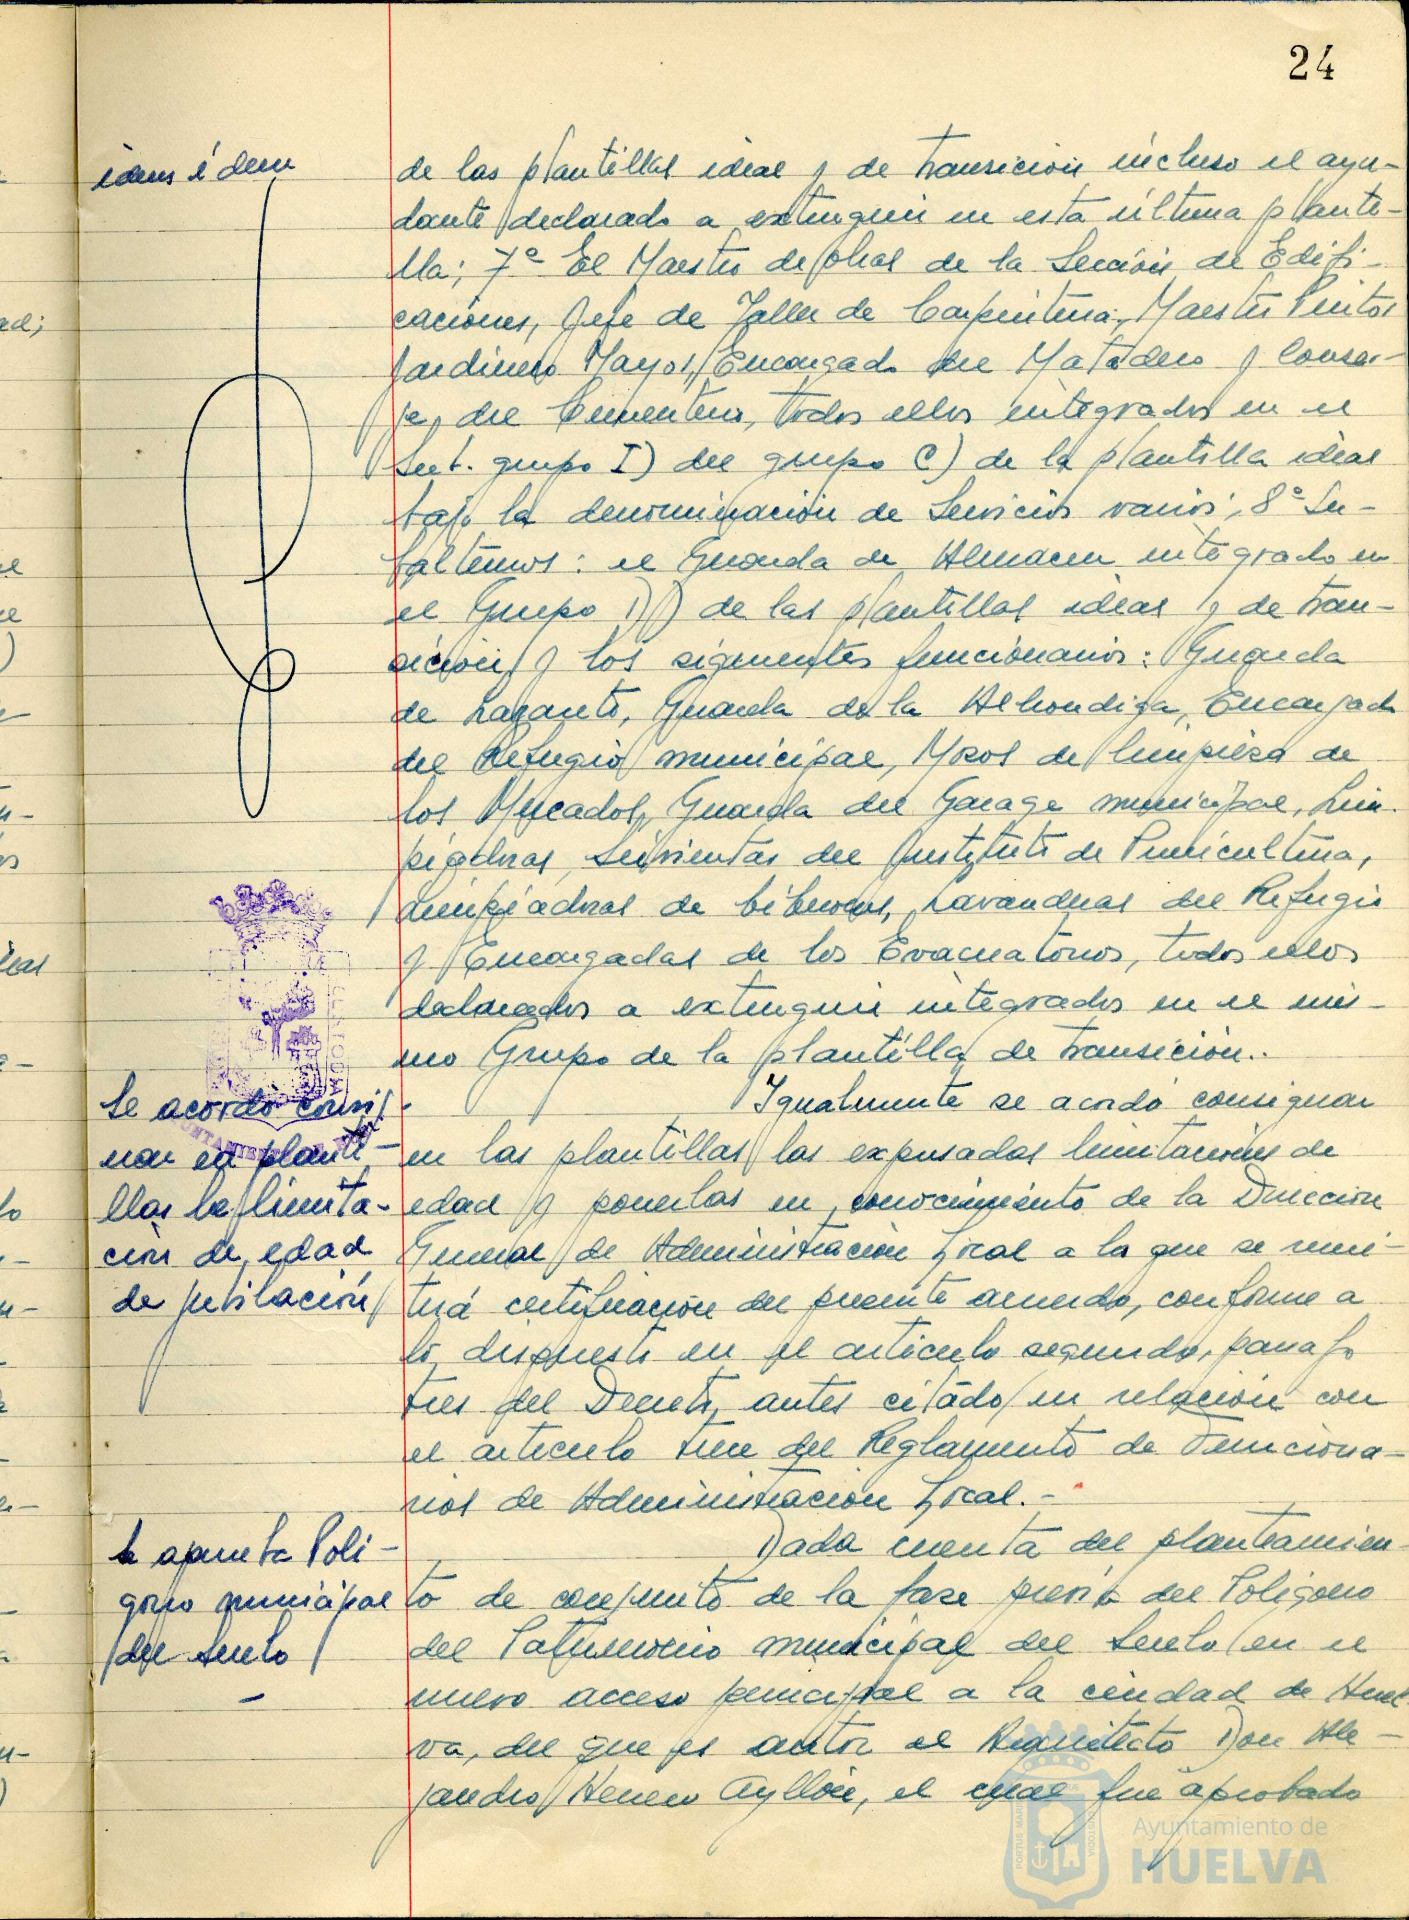 24
idem idem
de las plantillas ideal y de transición incluso el ayu-
dante declarado a extinguir en esta última planti-
lla; 7º El Maestro de obras de la Sección de Edifi-
caciones, Jefe de Taller de Carpintería, Maestro Pintor
Jardinero Mayor, Encargado del Matadero y Conser-
je del Cementerio, todos ellos integrados en el
Sub-grupo I) del grupo C) de la plantilla ideal
bajo la denominación de Servicios varios; 8º Su-
balternos: el Guarda de Almacen integrado en
el Grupo D) de las plantillas ideal y de tran-
sición y los siguientes funcionarios: Guarda
de Lazareto, Guarda de la Alhondiga, Encargado
del Refugio municipal, Mozos de limpieza de
los Mercados, Guarda del Garage municipal, Lim-
piadoras, Sirvientas del Instituto de Puericultura,
Limpiadoras de biberones, Lavanderas del Refugio
y Encargadas de los Evacuatorios, todos ellos
declarados a extinguir integrados en el mis-
mo Grupo de la plantilla de transición..
Se acordó consig-
nar en planti-
llas la limita-
ción de edad
de jubilación
Igualmente se acordó consignar
en las plantillas las expresadas limitaciones de
edad y ponerlas en conocimiento de la Dirección
General de Administración Local a la que se remi-
tirá certificación del presente acuerdo, conforme a
lo dispuesto en el articulo segundo, parrafo
tres del Decreto antes citado en relación con
el articulo trece del Reglamento de Funciona-
rios de Administración Local.-
Se aprueba Poli-
gono municipal
del Suelo
Dada cuenta del planteamien-
to de conjunto de la fase previa del Poligono
del Patrimonio municipal del Suelo en el
nuevo acceso principal a la ciudad de Huel-
va, del que es autor el Arquitecto Don Ale-
jandro Herrero Ayllón, el cual fue aprobado
Ayuntamiento de
HUELVA